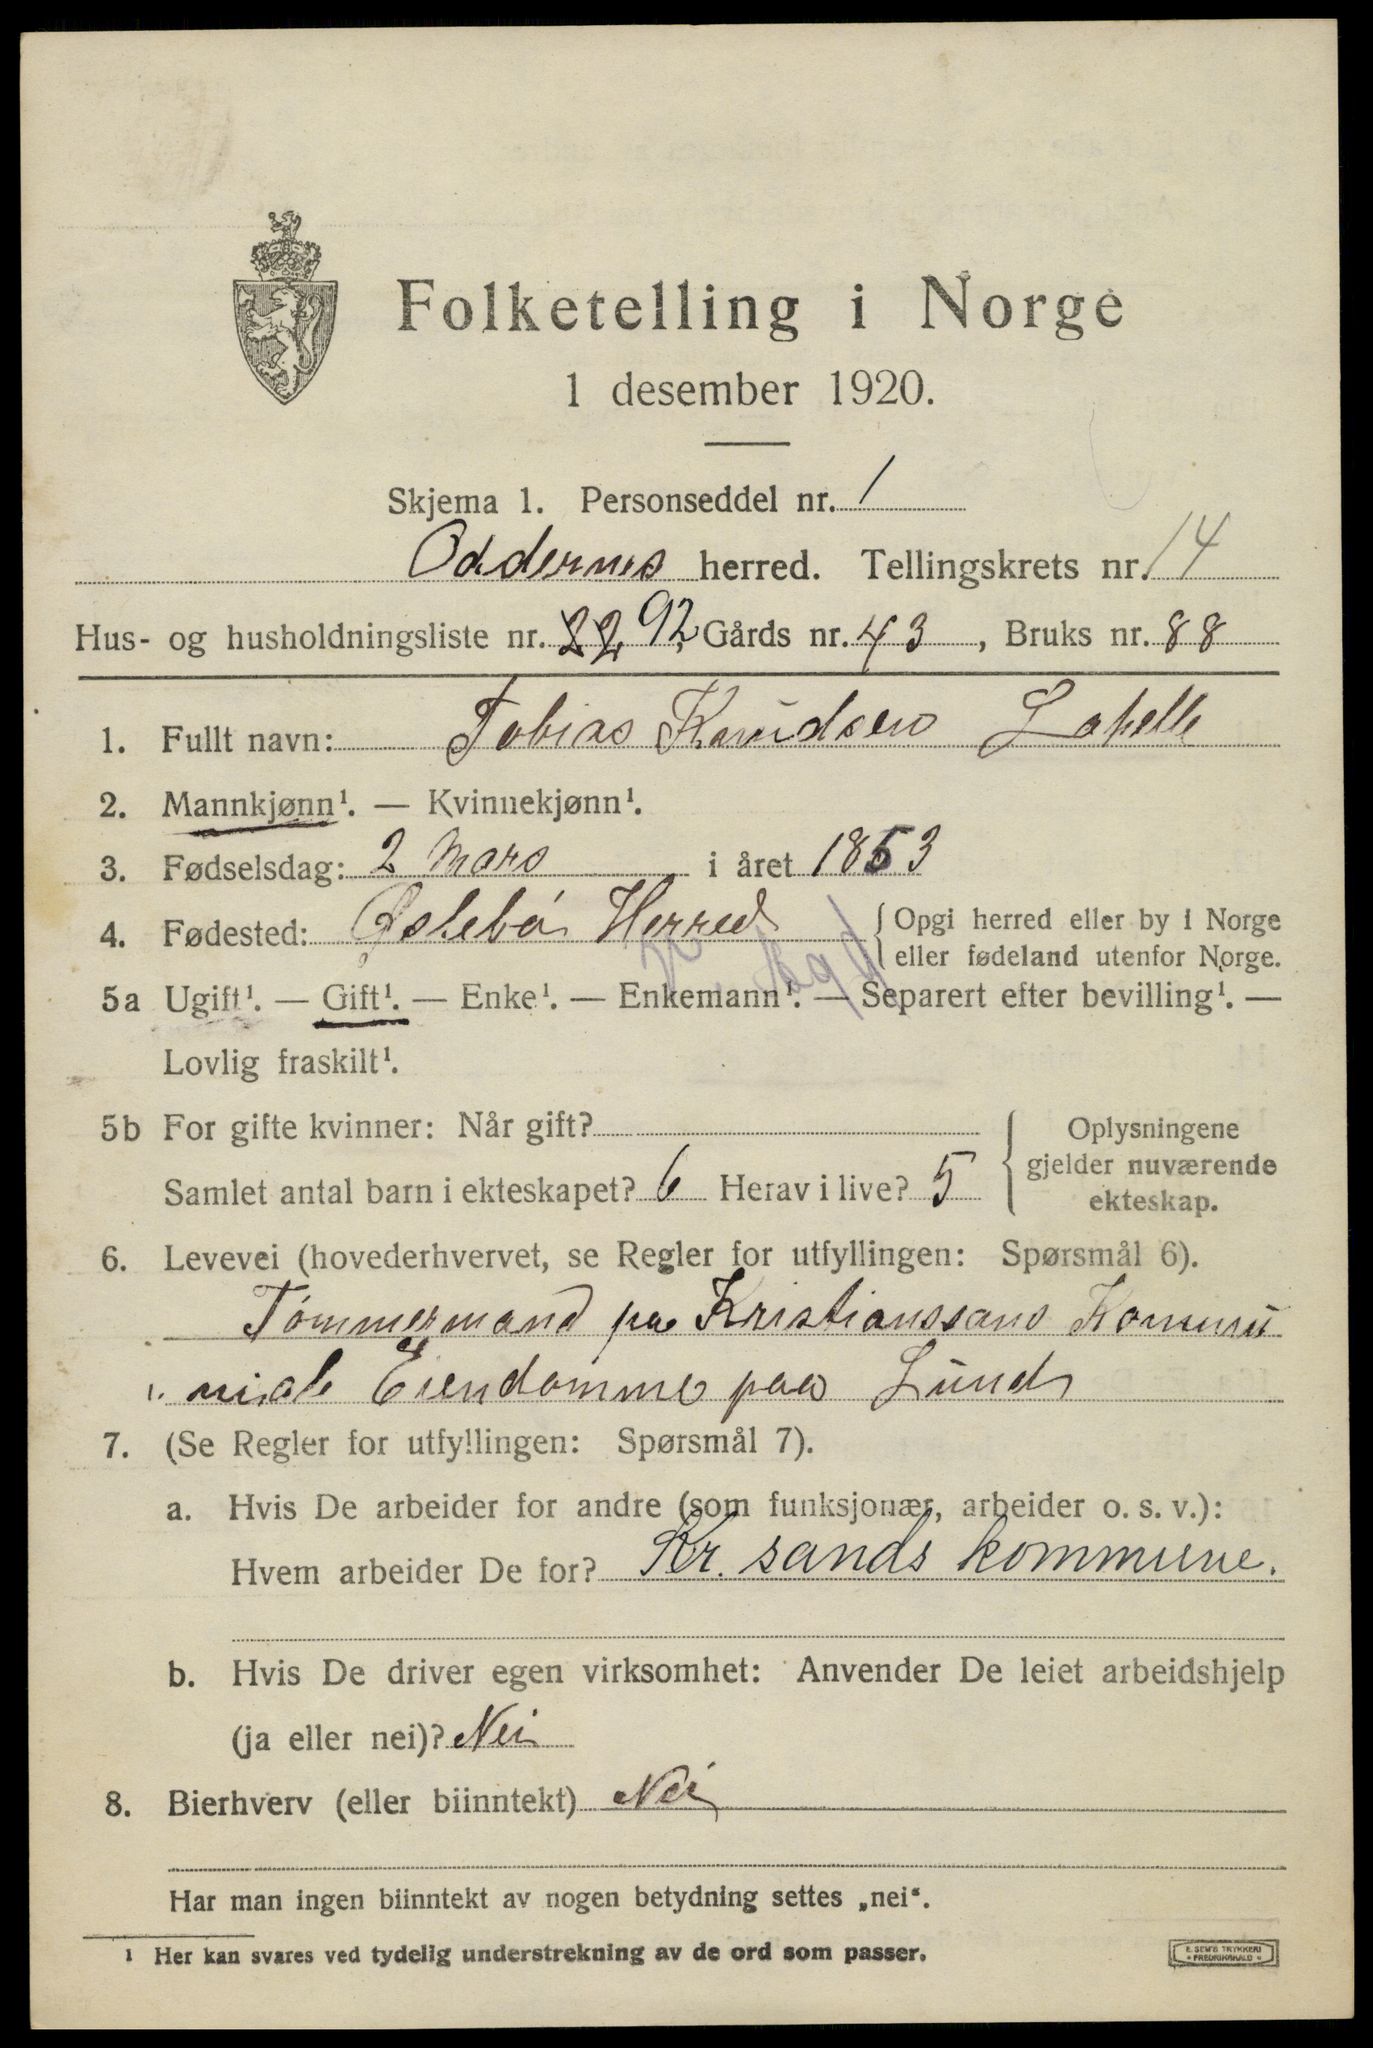 Folketelling i Norge
1 desember 1920.
Skjema 1. Personseddel nr. 1
Oddernes herred. Tellingskrets nr. 14
Hus- og husholdningsliste nr. 22 92, Gårds nr. 43, Bruks nr. 88
1. Fullt navn: Tobias Knudsen
2. Mannkjønn¹. — Kvinnekjønn¹.
3. Fødselsdag: 2 Mars i året 1853
4. Fødested: Øslebø Herred {Opgi herred eller by i Norge
eller fødeland utenfor Norge.
5a Ugift¹. — Gift¹. — Enke¹. — Enkemann¹. — Separert efter bevilling¹. —
Lovlig fraskilt¹.
5b For gifte kvinner: Når gift?
Samlet antal barn i ekteskapet? 6 Herav i live? 5
Oplysningene
gjelder nuværende
ekteskap.
6. Levevei (hovederhvervet, se Regler for utfyllingen: Spørsmål 6).
Tømmermand paa Kristianssans Kommu
niale Eiendomme paa Lund
7. (Se Regler for utfyllingen: Spørsmål 7).
a. Hvis De arbeider for andre (som funksjonær, arbeider o. s. v.):
Hvem arbeider De for? Kr. sands kommune.
b. Hvis De driver egen virksomhet: Anvender De leiet arbeidshjelp
(ja eller nei)? Nei
8. Bierhverv (eller biinntekt) Nei
Har man ingen biinntekt av nogen betydning settes „nei“.
¹ Her kan svares ved tydelig understrekning av de ord som passer.
E. SEM'S TRYKKERI
FREDRIKSHALD